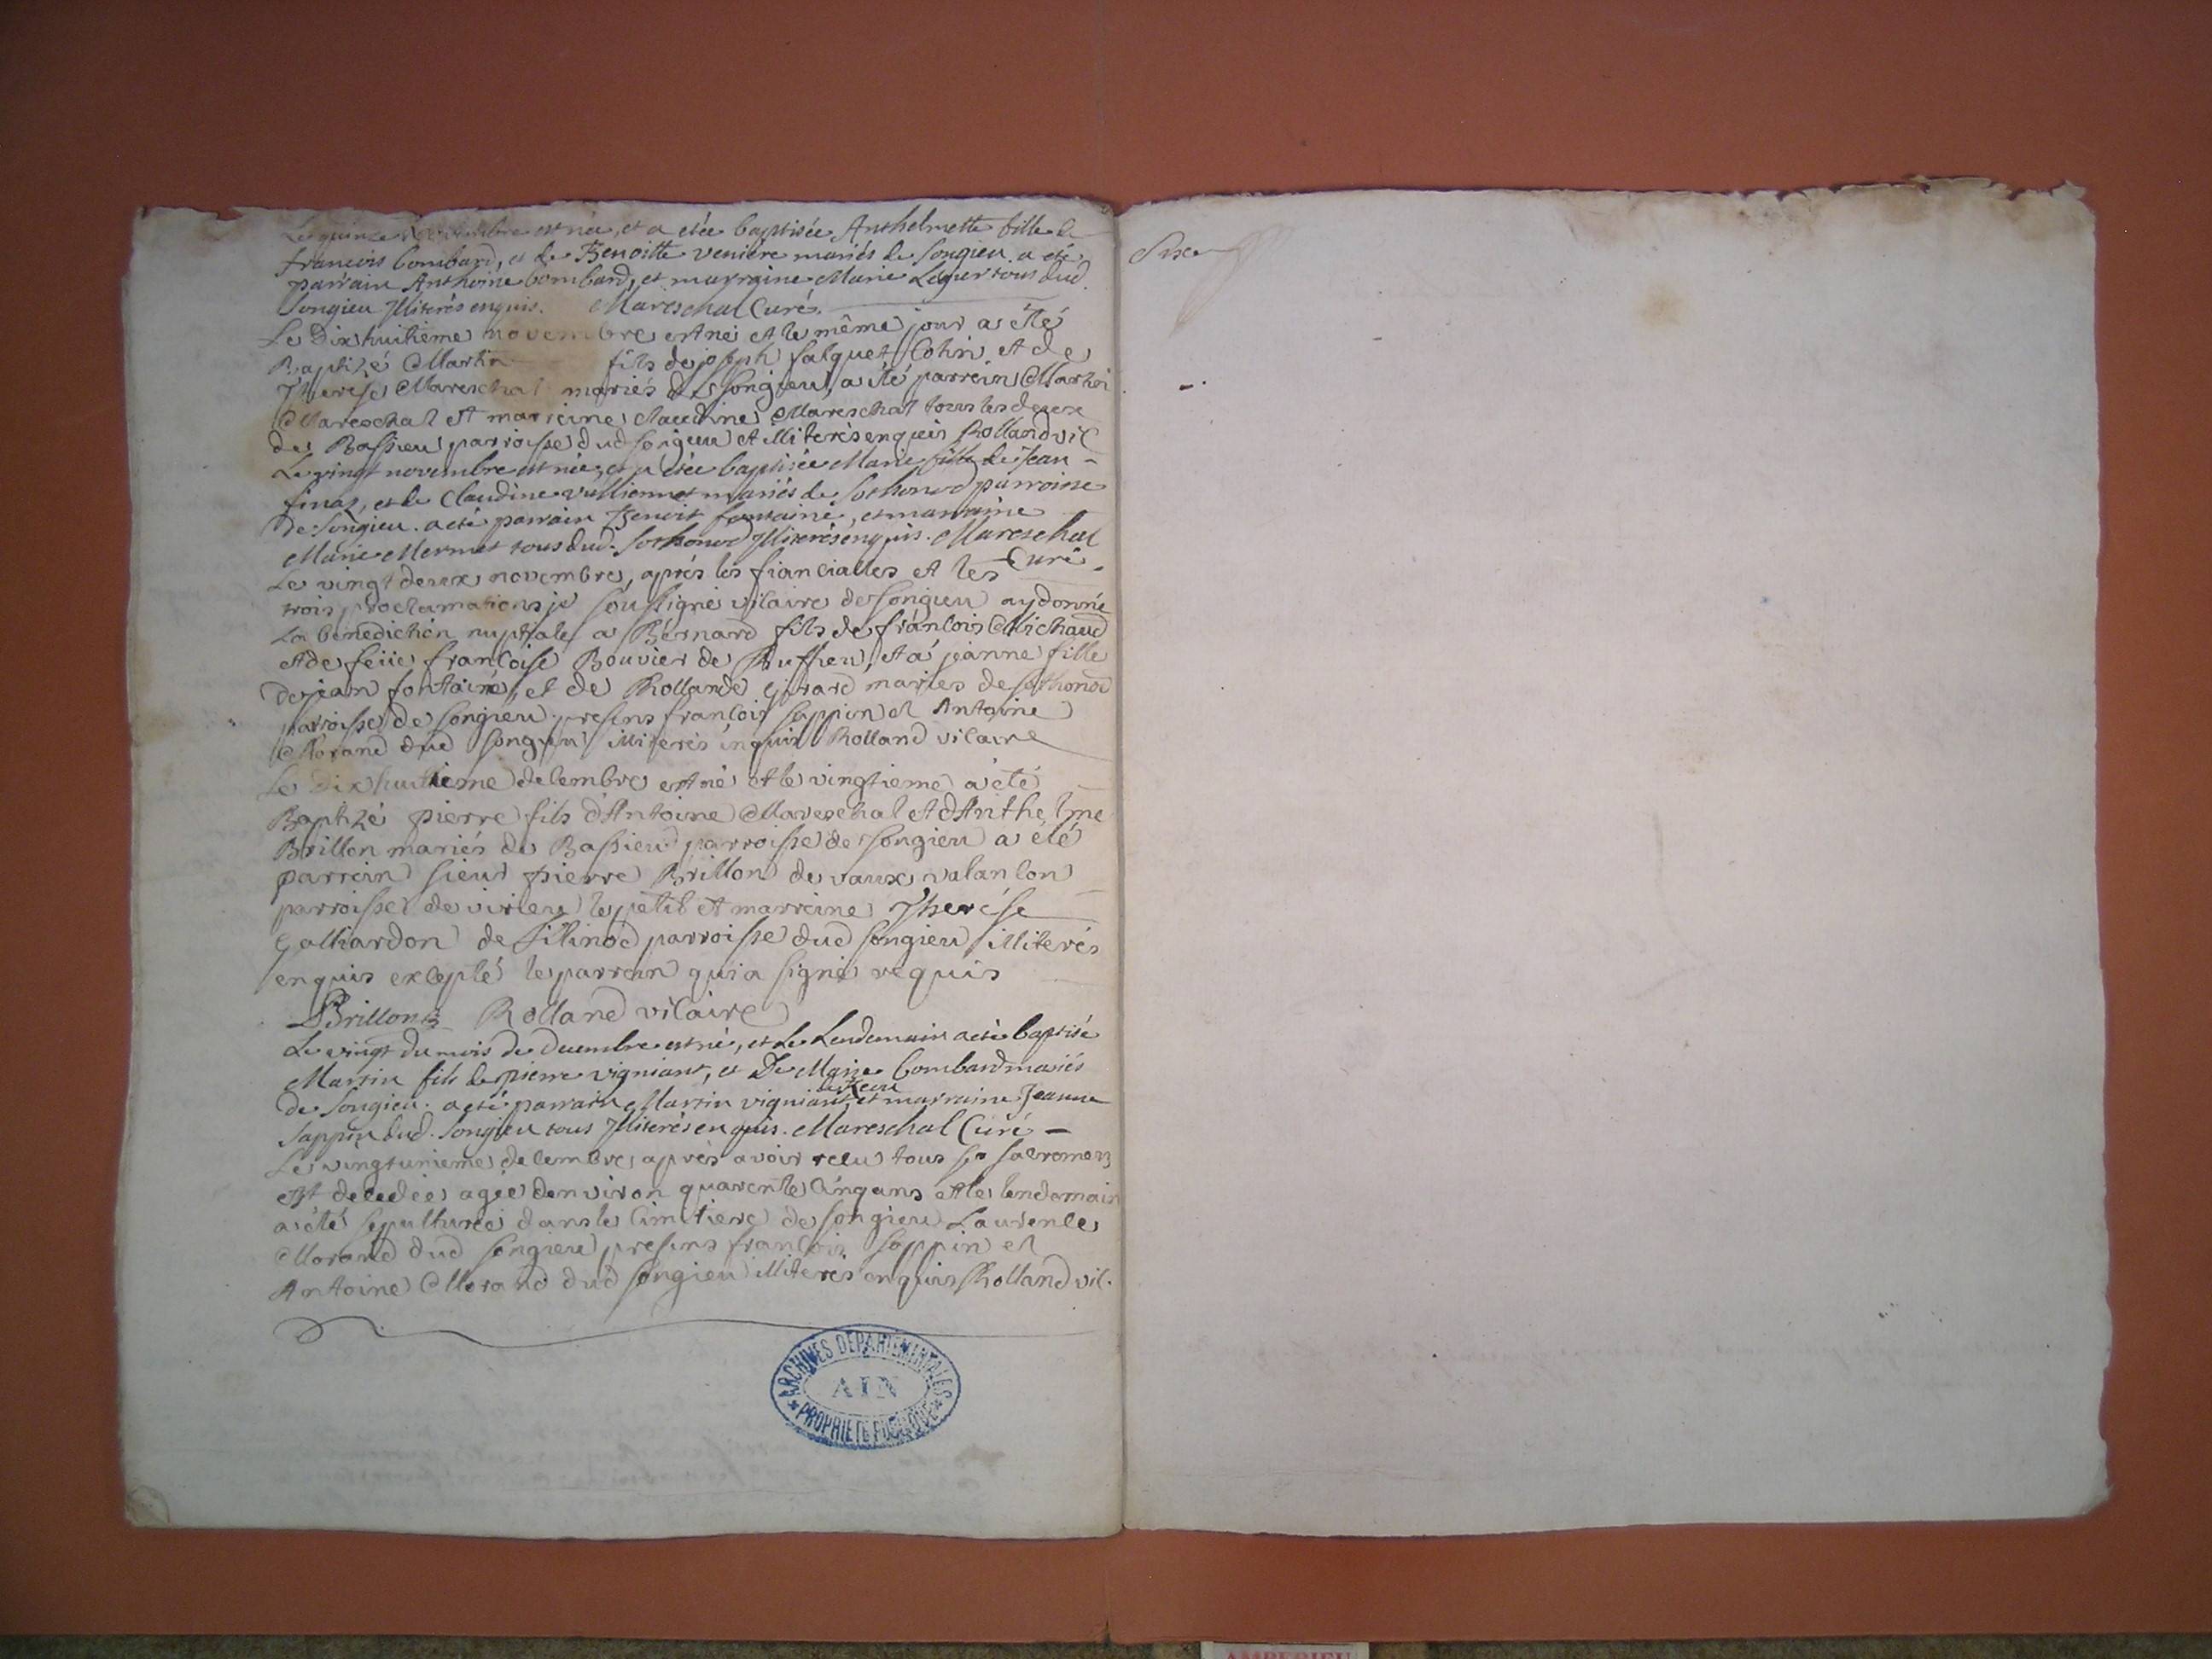 Le quinze novembre est née, et a etée baptisée Anthelmette fille de
francois bombard, et de Benoitte veniere mariés de Songieu a été
parrain Anthoine bombard, et marraine Marie Leger tous dud.
Songieu Illiterés enquis. Mareschal Curé.
Le Dix huitieme novembre est né et le même jour a été
Baptizé Martin fils de joseph falquet Cohin et de
Therese Mareschal mariés de Songieu, a été parrein Martin
Mareschal et marreine claudine Mareschal tous les deux
de Bassieu parroisse dud songieu et illiterés enquis Rolland vic
Le vingt novembre est née, et a etée baptisée Marie fille de Jean
finaz, et de Claudine vulliermet mariés de Sothonod parroisse
De Songieu. a eté parrain Benoit fontaine, et marraine
Marie Mermet tous dud. Sothonod Illiterés enquis. Mareschal
Curé.
Le vingt deux novembre, aprés les fiancialles et les
trois proclamations je soussigné vicaire de songieu ay donné
La benediction nuptiale a Bernard fils de francois Michaud
et de feüe francoise Bouvier de Ruffieu, et a jeanne fille
de jean fontaine, et de Rollande girard mariés de sothonod
parroisse de songieu. presens francois sappin et Antoine
Morand dud songieu illiterés enquis Rolland vicaire
Le Dix huitieme decembre est né et le vingtieme a été
Baptizé pierre fils d'Antoine Mareschal et d'Anthelme
Brillon mariés de Bassieu parroisse de songieu a été
parrein sieur pierre Brillon de vaux valancon
parroisse de virieu le petit et marreine Therése
Galliardon de Sillinod parroisse dud songieu illiterés
enquis excepté le parrein qui a signé requis
Brillon Rolland vicaire
Le vingt du mois de Decembre est né, et Le Lendemain a eté baptisé
Martin fils de pierre vigniant, et De Marie bombard mariés
de Jean
de Songieu. a eté parrain Martin vigniant, et marraine Jeanne
Sappin dud. Songieu tous Illiterés enquis. Mareschal Curé
Le vingtunieme decembre après avoir recu tous ses sacremens
est decedée agée denviron quarente cinq ans et le lendemain
a été sepulturée dans le cimitiere de songieu Laurence
Morand dud songieu presens francois sappin et
Antoine Morand dud songieu illiteres enquis Rolland vic.
ARCHIVES DEPARTEMENTALES
AIN
PROPRIETE PUBLIQUE